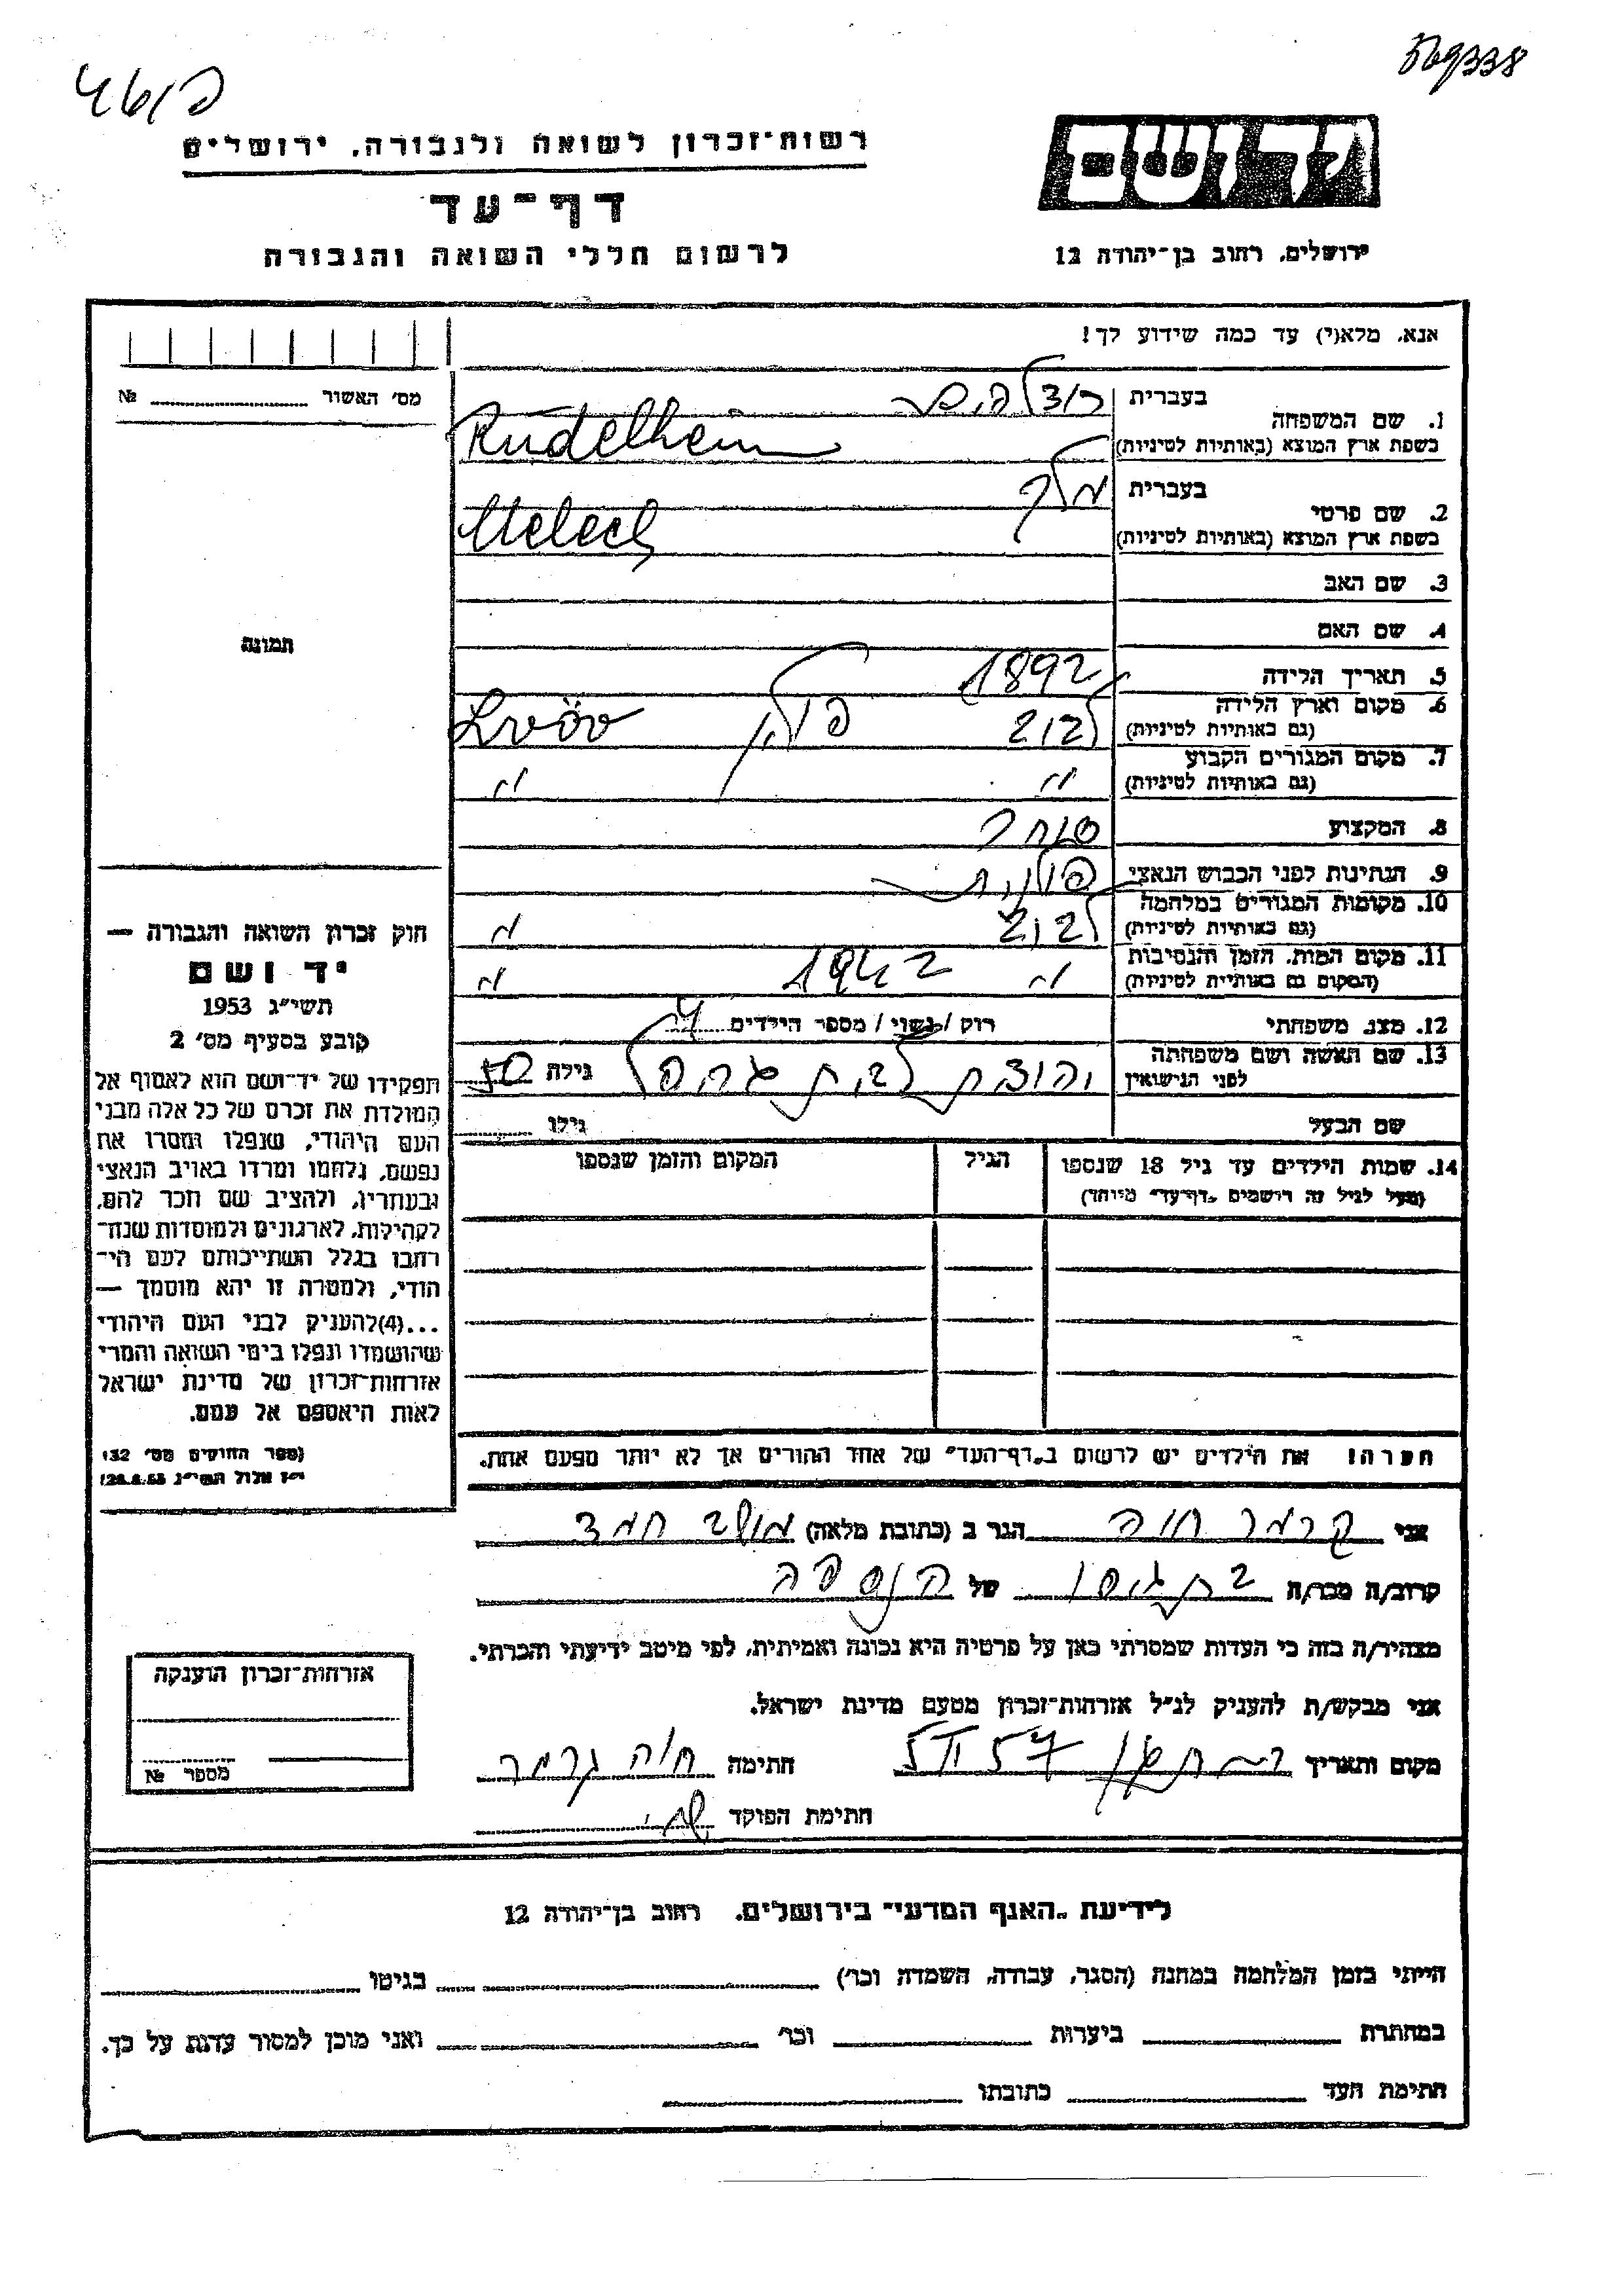 569338
רשות־זכרון לשואה ולגבורה, ירושלים
דף־עד
לרשום חללי השואה והגבורה
ידושם
ירושלים, רחוב בן־יהודה 12
אנא, מלא(י) עד כמה שידוע לך!
מס׳ האשור №
1. שם המשפחה
בעברית
בשפת ארץ המוצא (באותיות לטיניות) Rudelheim
2. שם פרטי
בעברית מלך
בשפת ארץ המוצא (באותיות לטיניות) Melech
3. שם האב
4. שם האם
תמונה
5. תאריך הלידה 1892
6. מקום וארץ הלידה (גם באותיות לטיניות) לבוב פולין Lvov
7. מקום המגורים הקבוע (גם באותיות לטיניות) " "
8. המקצוע סוחר
9. הנתינות לפני הכבוש הנאצי פולנית
10. מקומות המגורים במלחמה (גם באותיות לטיניות) לבוב "
11. מקום המות, הזמן והנסיבות (המקום גם באותיות לטיניות) " 1942 "
12. מצב משפחתי רוק / נשוי / מספר הילדים 4
13. שם האשה ושם משפחתה לפני הנישואין יהודית לבית גילה 50
שם הבעל גילו
14. שמות הילדים עד גיל 18 שנספו הגיל המקום והזמן שנספו
(מעל לגיל זה רושמים „דף־עד״ מיוחד)
חוק זכרון השואה והגבורה —
יד ושם
תשי״ג 1953
קובע בסעיף מס׳ 2
תפקידו של יד־ושם הוא לאסוף אל
המולדת את זכרם של כל אלה מבני
העם היהודי, שנפלו ומסרו את
נפשם, נלחמו ומרדו באויב הנאצי
ובעוזריו, ולהציב שם וזכר להם,
לקהילות, לארגונים ולמוסדות שנח־
רבו בגלל השתייכותם לעם הי־
הודי, ולמטרה זו יהא מוסמך —
...(4)להעניק לבני העם היהודי
שהושמדו ונפלו בימי השואה והמרי
אזרחות־זכרון של מדינת ישראל
לאות היאספם אל עמם.
(ספר החוקים מס׳ 132
י״ז אלול תשי״ג 28.8.53)
הערה! את הילדים יש לרשום ב„דף־העד״ של אחד ההורים אך לא יותר מפעם אחת.
אני קרמר חוה הגר ב (כתובת מלאה) מושב חמד
קרוב/ה מכר/ה בת גיסו של הנספה
מצהיר/ה בזה כי העדות שמסרתי כאן על פרטיה היא נכונה ואמיתית, לפי מיטב ידיעתי והכרתי.
אני מבקש/ת להעניק לנ״ל אזרחות־זכרון מטעם מדינת ישראל.
מקום ותאריך חתימה חוה קרמר
חתימת הפוקד
אזרחות־זכרון הוענקה
מספר №
לידיעת „האגף המדעי״ בירושלים, רחוב בן־יהודה 12
הייתי בזמן המלחמה במחנה (הסגר, עבודה, השמדה וכו׳) בגיטו
במחתרת ביערות וכו׳ ואני מוכן למסור עדות על כך.
חתימת העד כתובתו